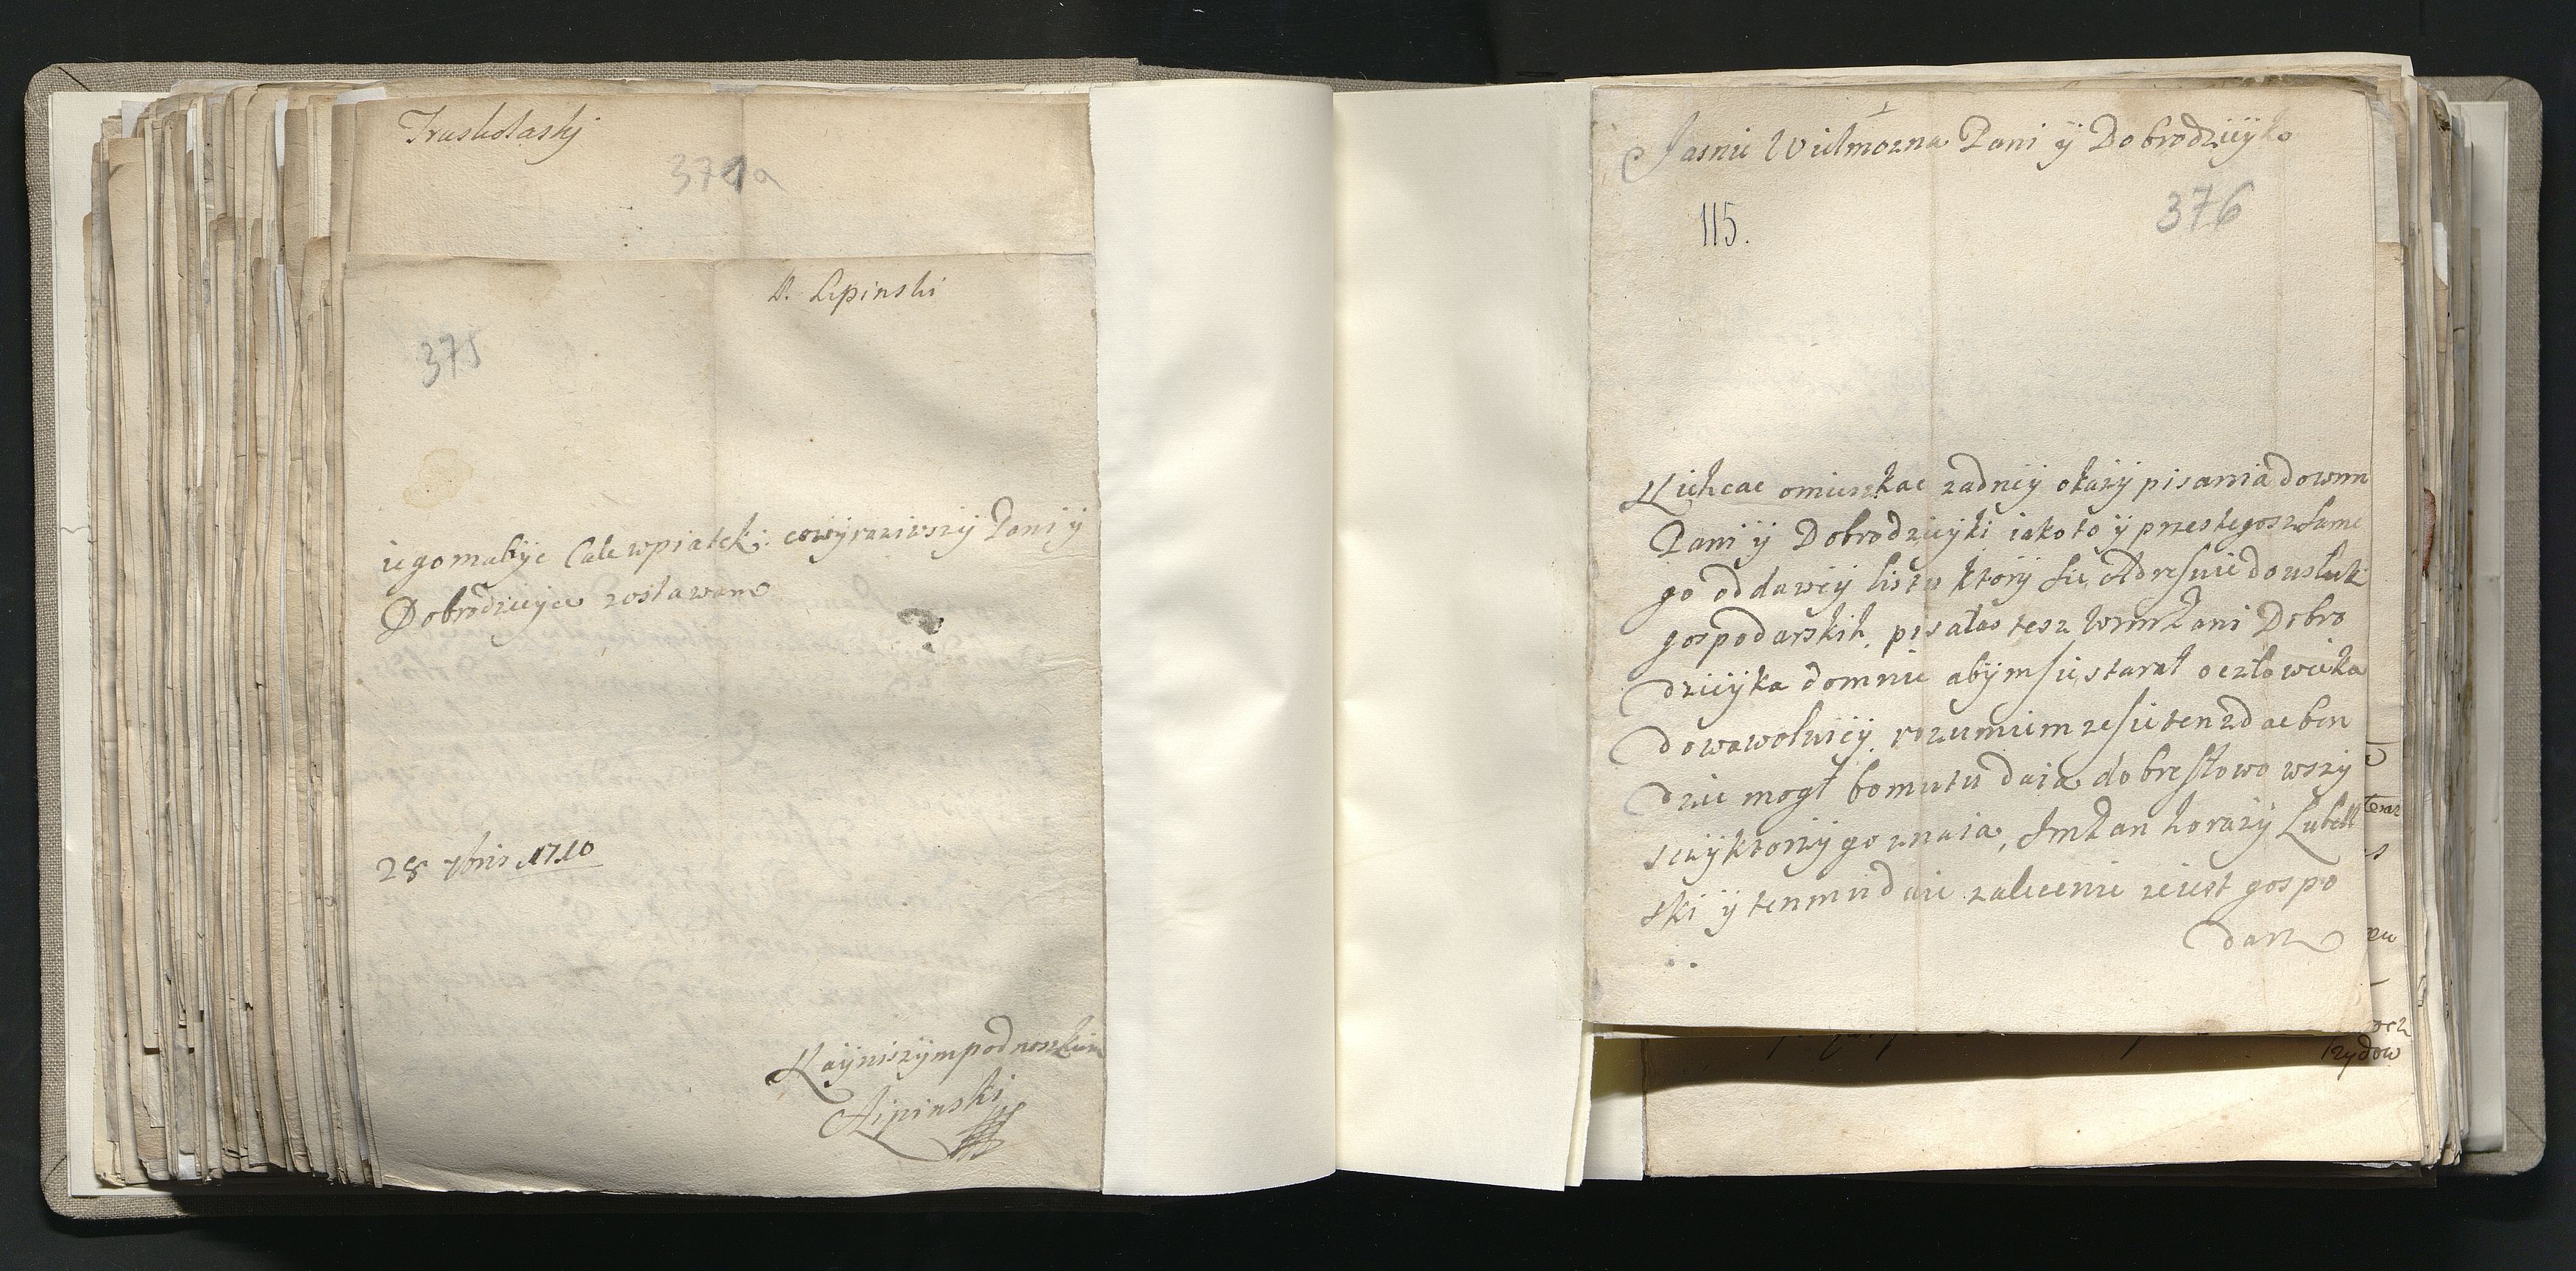 Truskolaskj
371a
P. Lipinski
375
iego mabÿc Cale wpiatek: cowÿraziwszÿ Pani ÿ
Dobrodzieyce zostawam
28 7bris 1710
Naÿniszÿm podnoszkiem
ALipinski
Jasnie Wielmozna Pani ÿ Dobrodzieÿko
115.
376
Niehcac omieszkac zadneÿ okazÿ pisania dowm
Pani ÿ Dobrodzieÿki iako to ÿ przes tegosz same
go oddawcÿ listu ktorÿ sie Adresuie do usluk
gospodarskih, pisalas tesz WmmPani Dobro
dzieÿka domnie abÿm sie staral oczlowieka
do wolnicÿ, rozumiem ze sie ten zdac ben
dzie mogl bomu tu daia dobre slowo wszÿ
scÿ ktorzÿ go znaia, JmPan horazÿ Lubell
ski ÿ ten mu daie zalecenie ze iest gospo
darz
teraz
zydow